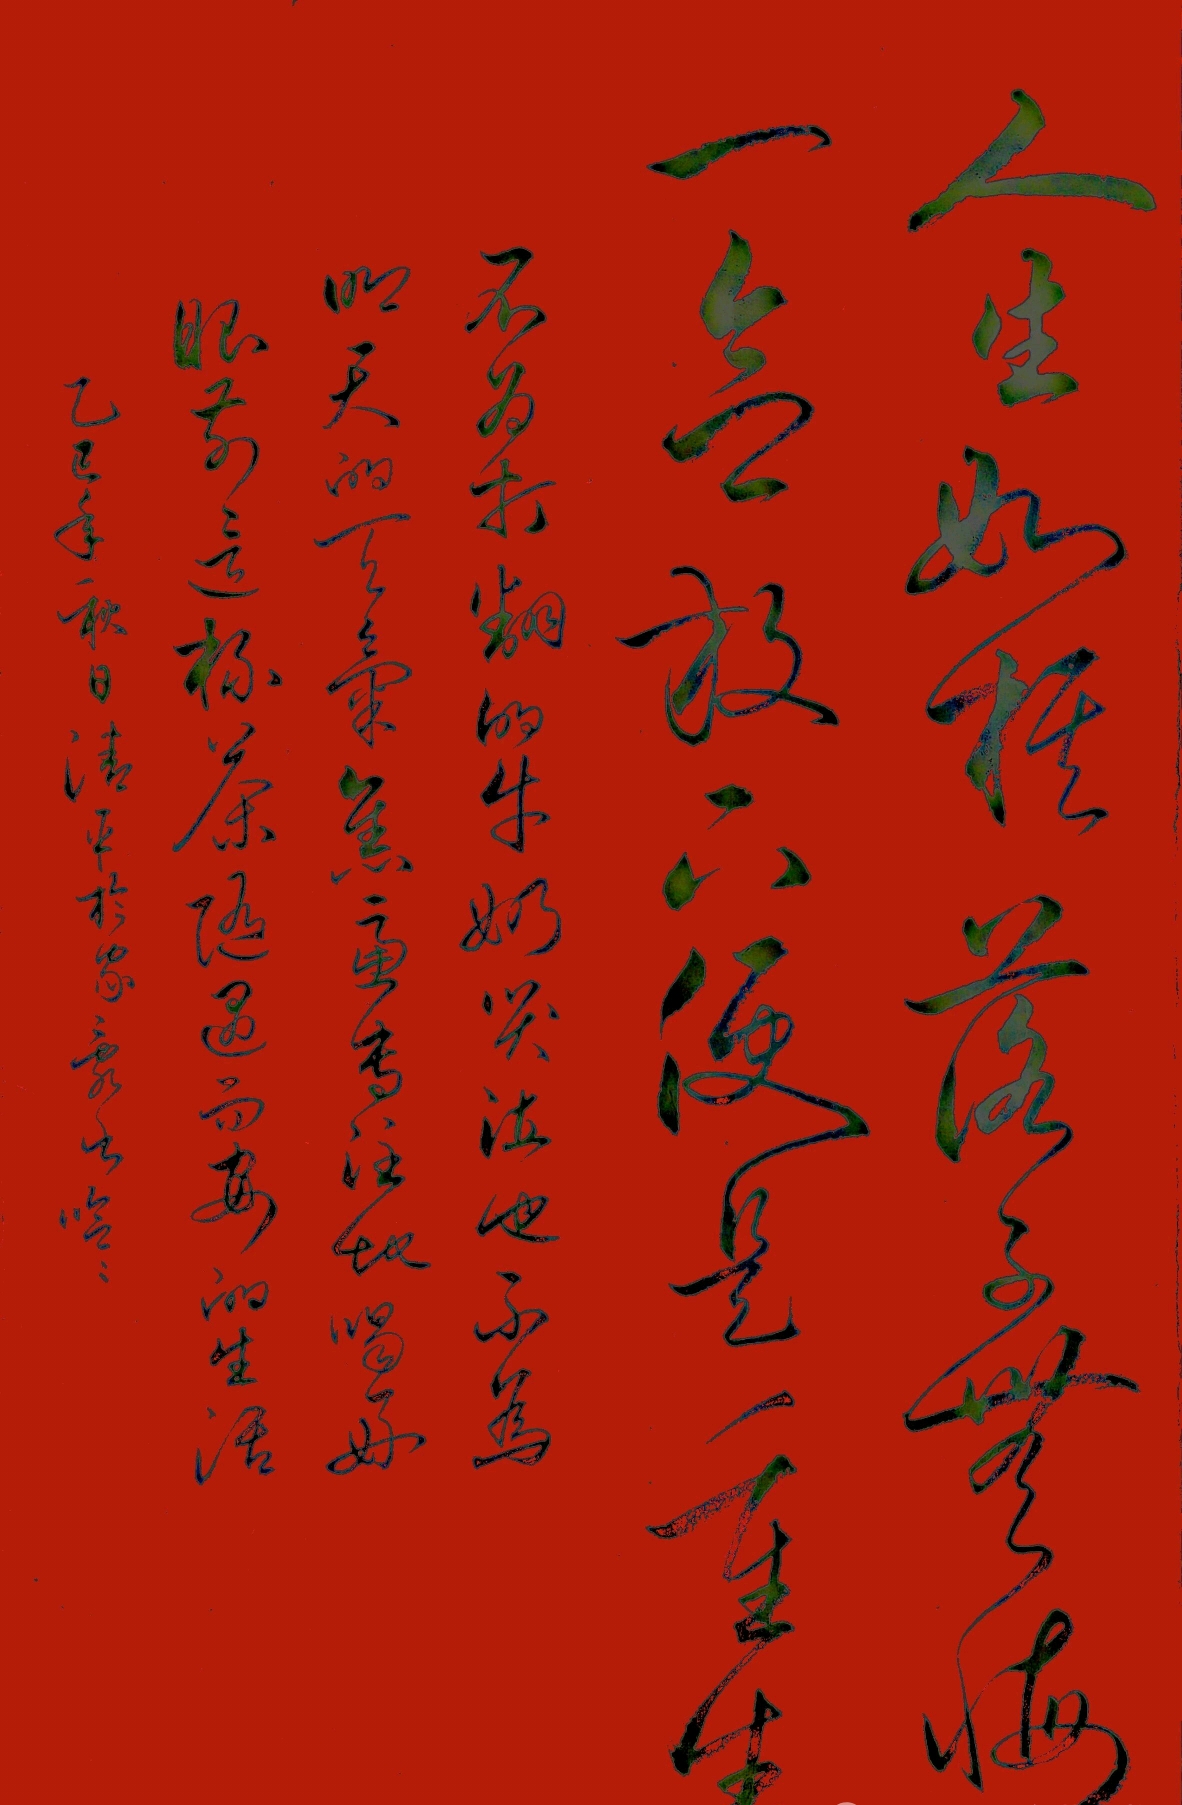 人生如棋落子無悔
一念放下便是重生
不为打翻的牛奶哭泣也不為
明天的天氣焦慮專注地喝好
眼前這杯茶隨遇而安的生活
乙巳年秋日清平於家